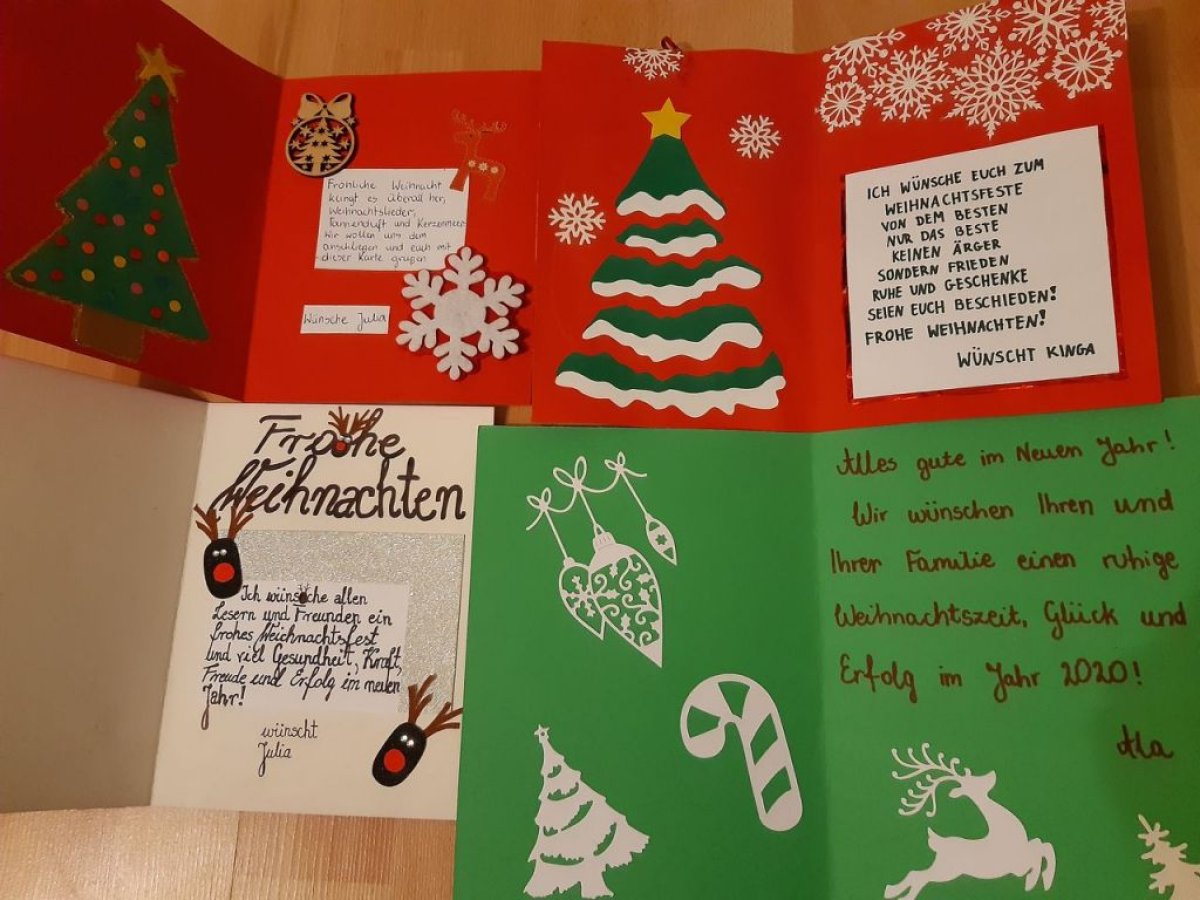 Fröhliche Weihnacht
klingt es überall her,
Weihnachtslieder,
Tannenduft und Kerzenmeer
Wir wollen uns dem
anschließen und euch mit
dieser Karte grüßen
Wünsche Julia
ICH WÜNSCHE EUCH ZUM
WEIHNACHTSFESTE
VON DEM BESTEN
NUR DAS BESTE
KEINEN ÄRGER
SONDERN FRIEDEN
RUHE UND GESCHENKE
SEIEN EUCH BESCHIEDEN!
FROHE WEIHNACHTEN!
WÜNSCHT KINGA
Frohe
Weihnachten
Ich wünsche allen
Lesern und Freunden ein
frohes Weichnachtsfest
und viel Gesundheit, Kraft,
Freude und Erfolg im neuen
Jahr!
wünscht
Julia
Alles gute im Neuen Jahr!
Wir wünschen Ihren und
Ihrer Familie einen ruhige
Weihnachtszeit, Glück und
Erfolg im Jahr 2020!
Ala